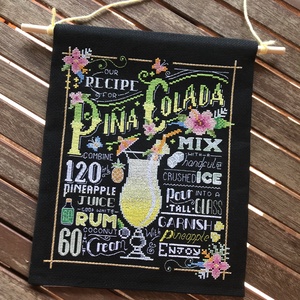 OUR
RECIPE
FOR
PIÑA COLADA
COMBINE
120 ml
PINEAPPLE
JUICE
WHITE
RUM
60 ml
COCONUT
Cream
MIX
WITH a
handful of
CRUSHED
ICE
Pour
INTO A
TALL
GLASS
GARNISH
With
pineapple
ENJOY